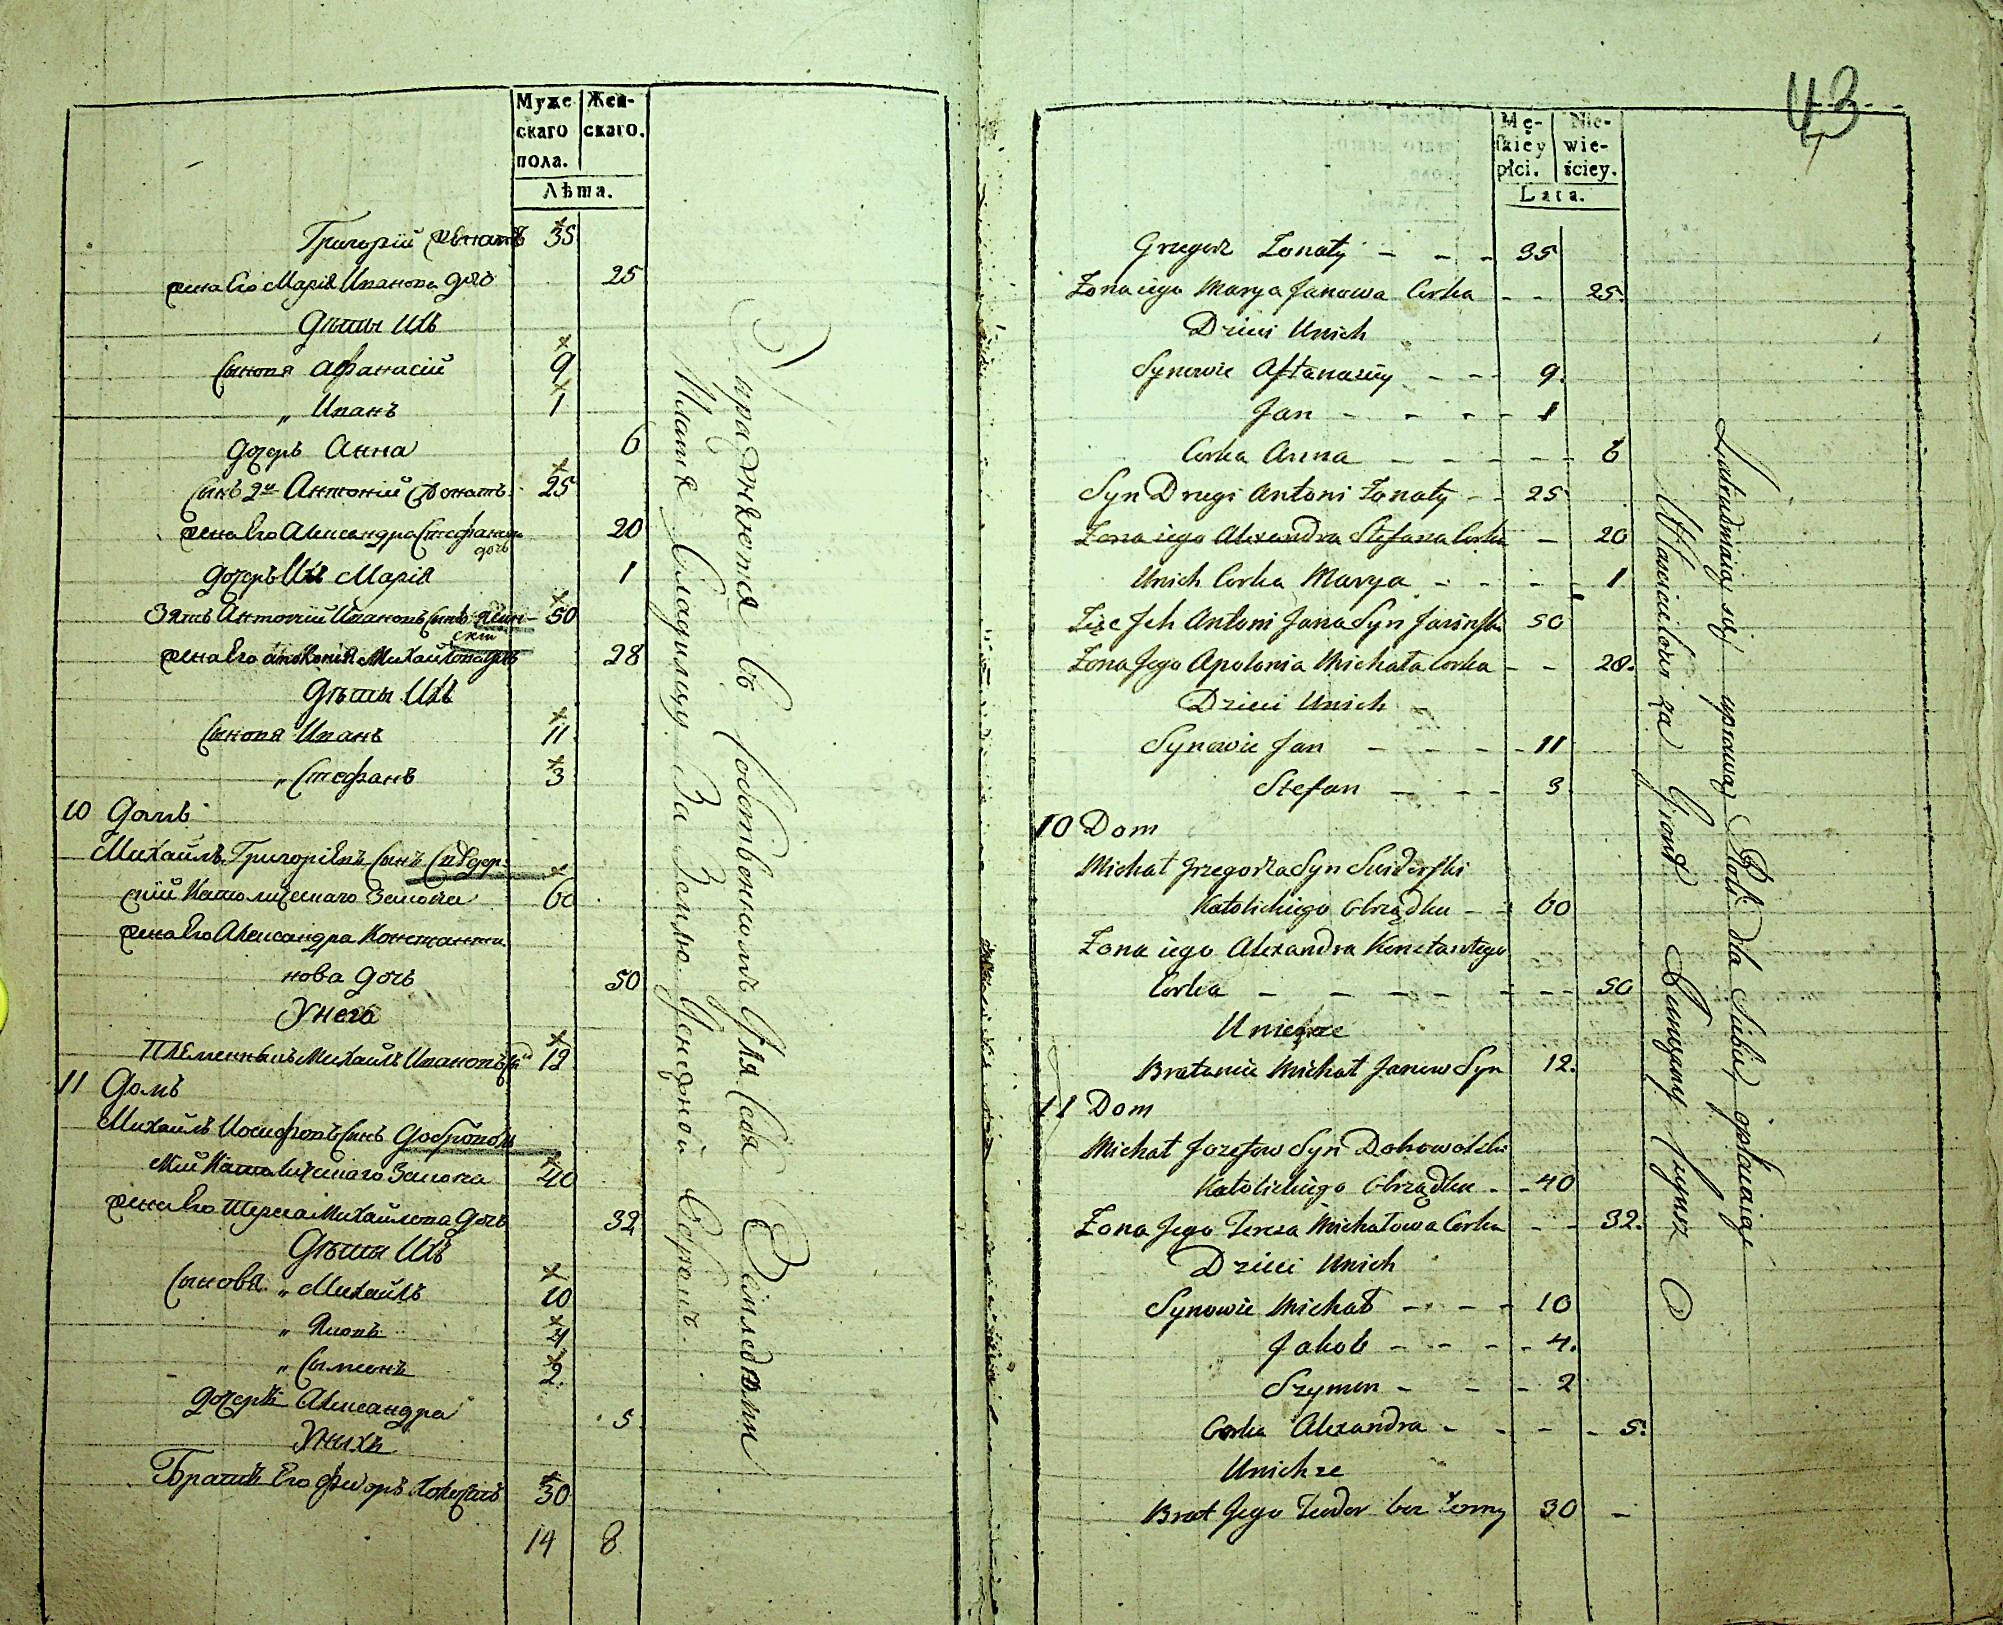 Муже
скаго
пола.
Жен-
скаго.
Лѣта.
Григорїй женатъ 35
жена Его Марїя Иванова дочь 25
Дѣти Ихъ
Сыновя Афанасїй 9
„ Иванъ 1
дочерь Анна 6
Сынъ 2й Антонїй женатъ 25
жена Его Александра Стефанова дочь 20
дочерь Ихъ Марїя 1
Зять Антонїй Ивановъ Сынъ 50
жена Его Аполонїя Михайлова дочь 28
Дѣти Ихъ
Сыновя Иванъ 11
„ Стефанъ 3
10 Домъ
Михайлъ Григорїевъ Сынъ Свѣдер-
скїй Католическаго Закона 60
жена Его Александра Константи
нова дочь 50
У него
Племенникъ Михайлъ Ивановъ 12
11 Домъ
Михайлъ Іосифовъ Сынъ Доброволь
скїй Католическаго Закона 40
жена Его Тереса Михайлова дочь 32
Дѣти Ихъ
Сыновя „ Михайлъ 10
„ Яковъ 4
„ Сымеонъ 2
дочерь Александра 5
У нихъ
Братъ Его Фиодоръ Холостъ 30
14 8
Упражняются въ собственномъ для себя
Платя Владѣльцу За Землю Чиншъ
43
Mę-
skiey
płci.
Nie-
wie-
ściey.
Lata.
Grzegorz Żonaty - - - 35
Żona iego Marya Janowa Corka - - 25.
Dzieci Unich
Synowie Aftanaziy - - - 9.
Jan - - - - 1
Corka Anna - - - - - 6
Syn Drugi Antoni Żonaty - - 25
Żona iego Alexandra Stefana Corka - 20
Unich Corka Marya - - - - 1
Zięc Jch Antoni Jana Syn Jasinski 50
Żona Jego Apolonia Michała Corka - - 28.
Dzieci Unich
Synowie Jan - - - - 11
Stefan - - - 3
10 Dom
Michał Grzegorza Syn Swiderski
Katolickiego Obrządku - - 60
Żona iego Alexandra Konstantego
Corka - - - - - - - 50
Uniegoże
Bratanic Michał Janow Syn 12.
11 Dom
Michał Jozefow Syn Dobrowolski
Katolickiego Obrządku - - 40
Żona Jego Teresa Michałowa Corka - - 32.
Dzieci Unich
Synowie Michał - - - - 10
Jakob - - - - 4.
Szymon - - - 2
Corka Alexandra - - - - 5.
Unichże
Brat Jego Teodor bez żenny 30 -
Zatrudniaią się uprawą Roli dla Siebie, opłacaiąc
Właścicielowi za Gront Czynsz